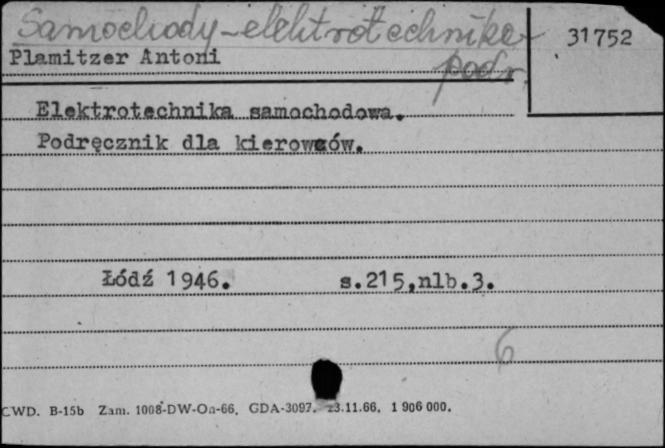 Samochody-elektrotechnika
31752
Plamitzer Antoni
podr.
Elektrotechnika samochodowa.
Podręcznik dla kierowców.
Łódź 1946. s.215,nlb.3.
6
CWD. B-15b Zam. 1008-DW-Oa-66. GDA-3097. 23.11.66. 1 906 000.